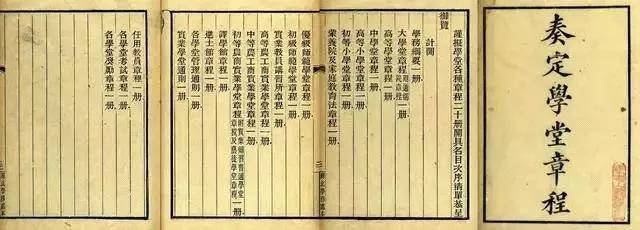 奏定學堂章程
謹擬學堂各種章程二十冊開具名目次序清單恭呈
御覽
計開
學務綱要一冊
大學堂章程附通儒院章程一冊
高等學堂章程一冊
中學堂章程一冊
高等小學堂章程一冊
初等小學堂章程一冊
蒙養院及家庭教育法章程一冊
優級師範學堂章程一冊
初級師範學堂章程一冊
實業教員講習所章程一冊
高等農工商實業學堂章程一冊
中等農工商實業學堂章程一冊
初等農商實業學堂章程附實業補習普通學堂章程及藝徒學堂章程一冊
譯學館章程一冊
進士館章程一冊
各學堂管理通則一冊
實業學堂通則一冊
任用教員章程一冊
各學堂考試章程一冊
各學堂獎勵章程一冊
湖北學務處本